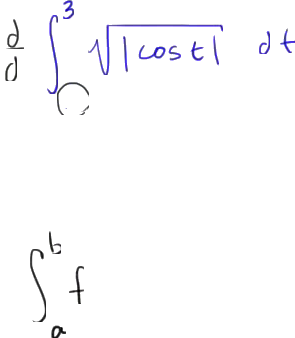 d/d ∫^3 √|cos t| dt
∫_a^b f